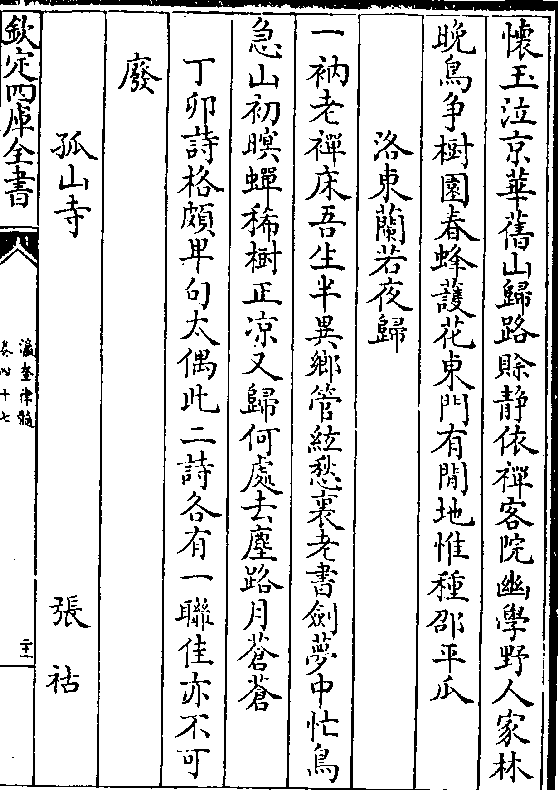 懐玉泣京華舊山歸路賖静依禪客院幽學野人家林
晚鳥争樹園春蜂䕶花東門有閒地惟種邵平瓜
洛東蘭若夜歸
一衲老禪床吾生半異鄉管絃愁裏老書劍夢中忙鳥
急山初暝蟬稀樹正凉又歸何處去塵路月蒼蒼
丁卯詩格頗卑句太偶此二詩各有一聯佳亦不可
廢
孤山寺 張祜
欽定四庫全書
瀛奎律髓
卷四十七